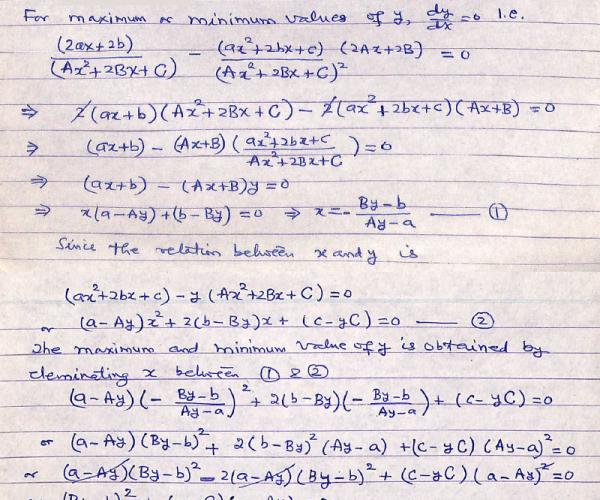 For maximum or minimum values of y, dy/dx = 0 i.e.
(2ax+2b)/(Ax²+2Bx+C) - (ax²+2bx+c)(2Ax+2B)/(Ax²+2Bx+C)² = 0
⇒ 2(ax+b)(Ax²+2Bx+C) - 2(ax²+2bx+c)(Ax+B) = 0
⇒ (ax+b) - (Ax+B)((ax²+2bx+c)/(Ax²+2Bx+C)) = 0
⇒ (ax+b) - (Ax+B)y = 0
⇒ x(a-Ay)+(b-By) = 0 ⇒ x = - (By-b)/(Ay-a) —— ①
Since the relation between x and y is
(ax²+2bx+c) - y(Ax²+2Bx+C) = 0
or (a-Ay)x² + 2(b-By)x + (c-yC) = 0 —— ②
The maximum and minimum value of y is obtained by
eleminating x between ① & ②
(a-Ay)(- (By-b)/(Ay-a))² + 2(b-By)(- (By-b)/(Ay-a)) + (c-yC) = 0
or (a-Ay)(By-b)² + 2(b-By)²(Ay-a) + (c-yC)(Ay-a)² = 0
or (a-Ay)(By-b)² - 2(a-Ay)(By-b)² + (c-yC)(a-Ay)² = 0